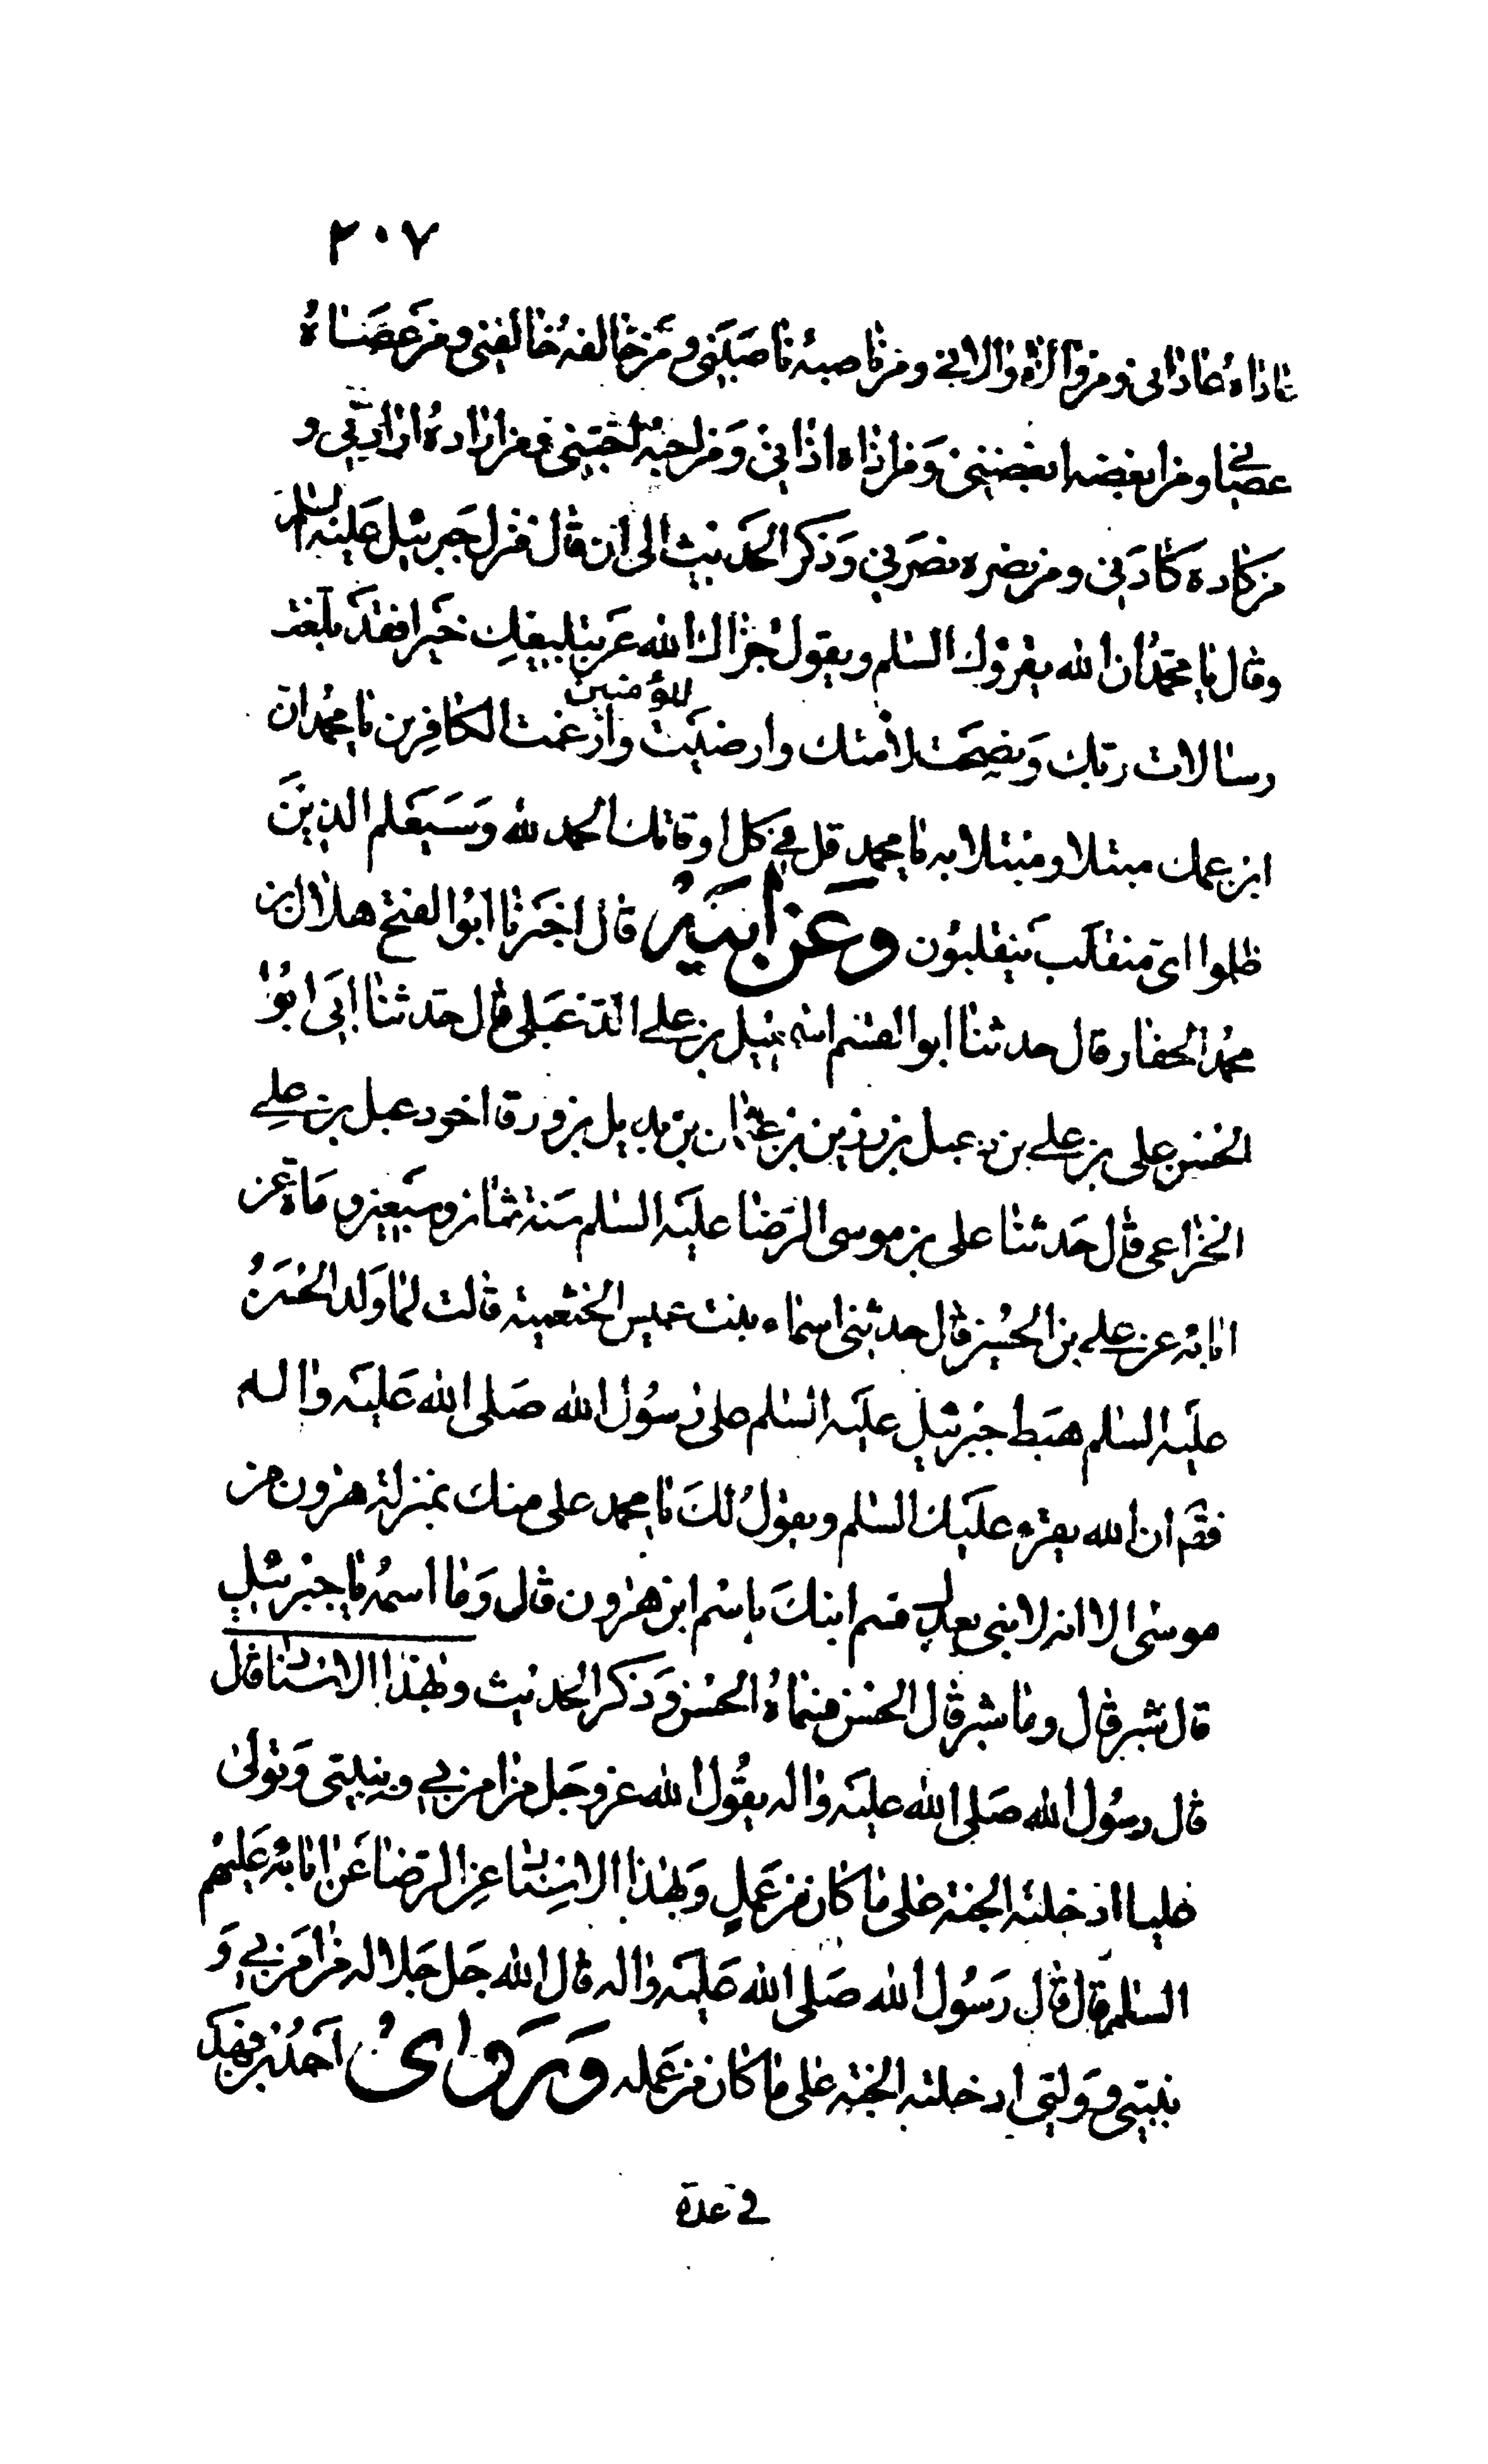 ٢٠٧
عاداه عاداني ومن والاه والاني ومن ناصبه ناصبني ومن خالفه خالفني ومن عصاه
عصاني ومن ابغضه ابغضني ومن اذاه اذاني ومن احبه احبني فمن اراده ارادني و
من كاده كادني ومن نصره نصرني وذكر الحديث الى ان قال فنزل جبرئيل عليه السلم
وقال يا محمد ان الله يقرؤك السلم ويقول جزاك الله عن تبليغك خيرا فقد بلغت
رسالات ربك ونصحت لامتك وارضيت المؤمنين وارغمت الكافرين يا محمد ان
ابن عمك مبتلا ومبتلا به يا محمد قل في كل اوقاتك الحمد لله وسيعلم الذين
ظلموا اي منقلب ينقلبون وعن ابيه قال اخبرنا ابو الفتح هلال بن
محمد الحفار قال حدثنا ابو القسم اسمعيل بن علي الدعبلي قال حدثنا ابي ابو
الحسن علي بن علي بن دعبل بن رزين بن عثمان بن بديل بن ورقا اخو دعبل بن علي
الخزاعي قال حدثنا علي بن موسى الرضا عليه السلم سنة ثمان وسبعين وماة عن
ابائه عن علي بن الحسين قال حدثتني اسماء بنت عميس الخثعمية قالت لما ولد الحسن
عليه السلم هبط جبرئيل عليه السلم على رسول الله صلى الله عليه واله
فقال ان الله يقرء عليك السلم ويقول لك يا محمد علي منك بمنزلة هرون من
موسى الا انه لا نبي بعدك فسم ابنك باسم ابن هرون قال وما اسمه يا جبرئيل
قال شبر قال وما شبر قال الحسن فسماه الحسن وذكر الحديث وبهذا الاسناد قال
قال رسول الله صلى الله عليه واله يقول الله عز وجل من امن بي وبنبيي وتولى
عليا ادخلته الجنة على ما كان من عمل وبهذا الاسناد عن الرضا عن ابائه عليهم
السلم قال قال رسول الله صلى الله عليه واله قال الله جل جلاله من امن بي و
نبيي وولي ادخلته الجنة على ما كان من عمله وروى احمد بن فهد
في عدة